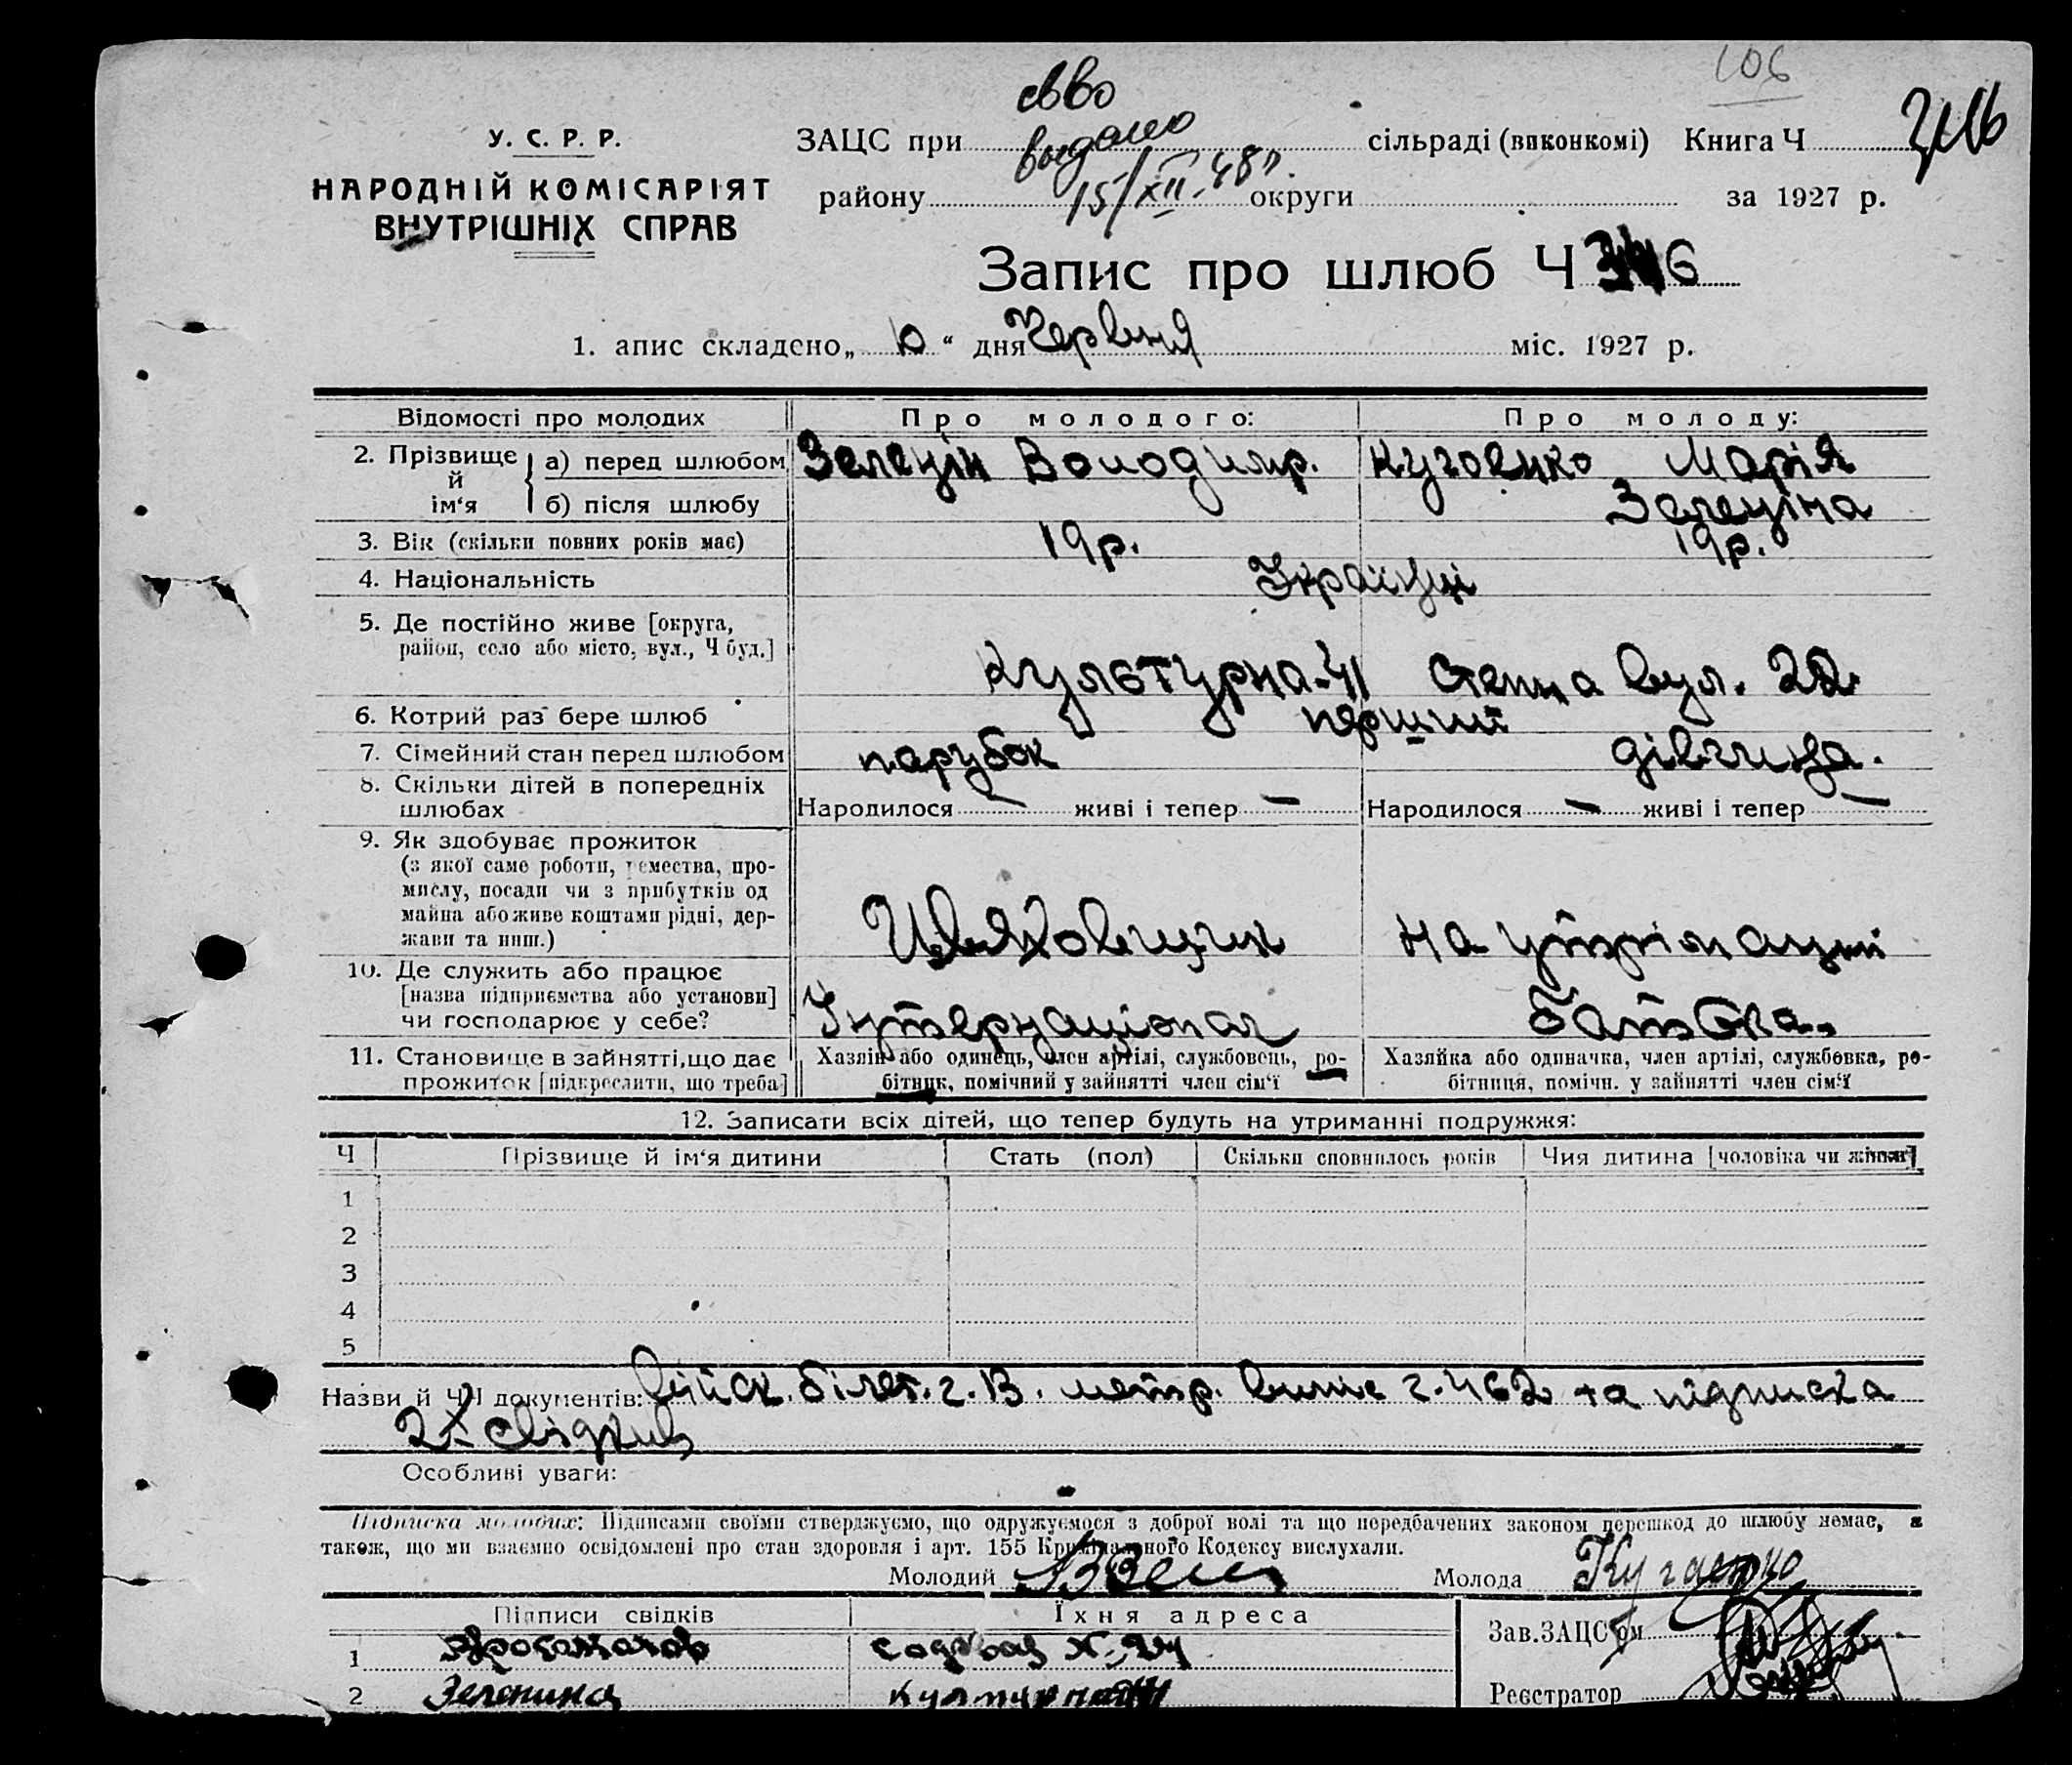 106
свво
видано
15/XII-48р.
У. С. Р. Р.
НАРОДНІЙ КОМІСАРІЯТ
ВНУТРІШНІХ СПРАВ
ЗАЦС при сільраді (виконкомі) Книга Ч
району округи за 1927 р.
Запис про шлюб Ч 6
1. апис складено „ 10 “ дня Червня міс. 1927 р.
Відомості про молодих Про молодого: Про молоду:
2. Прізвище й ім‘я а) перед шлюбом Зеленін Володимр. Кугоенко Марія
б) після шлюбу Зеленіна
3. Вік (скільки повних років має) 19р. 19р.
4. Національність Українці
5. Де постійно живе [округа,
район, село або місто, вул., Ч буд.] Культурна-41 Степна вул. 22
6. Котрий раз бере шлюб перший
7. Сімейний стан перед шлюбом парубок дівчина.
8. Скільки дітей в попередніх
шлюбах Народилося — живі і тепер — Народилося — живі і тепер —
9. Як здобуває прожиток
(з якої саме роботи, ремества, про-
мислу, посади чи з прибутків од
майна або живе коштами рідні, дер-
жави та инш.) Цвяховщик на утріманні
10. Де служить або працює
[назва підприємства або установи]
чи господарює у себе? Інтернаціонал батька.
11. Становище в зайнятті, що дає
прожиток [підкреслити, що треба] Хазяїн або одинець, член артілі, службовець, ро-
бітник, помічний у зайнятті член сім‘ї
Хазяйка або одиначка, член артілі, службовка, ро-
бітниця, помічн. у зайнятті член сім‘ї
12. Записати всіх дітей, що тепер будуть на утриманні подружжя:
Ч Прізвище й ім‘я дитини Стать (пол) Скільки сповнилось років Чия дитина [чоловіка чи жінки]
1
2
3
4
5
Назви й ЧЧ документів: військ. білет. г. 13. метр. випис г. 462 та підписка
2х свідків
Особливі уваги:
Підписка молодих: Підписами своїми стверджуємо, що одружуємося з доброї волі та що передбачених законом перешкод до шлюбу немає, а
також, що ми взаємно освідомлені про стан здоровля і арт. 155 Кримінального Кодексу вислухали.
Молодий ВЗел Молода Кугаенко
Підписи свідків Їхня адреса Зав. ЗАЦС‘ом
1 Садовая
2 Зеленина Реєстратор